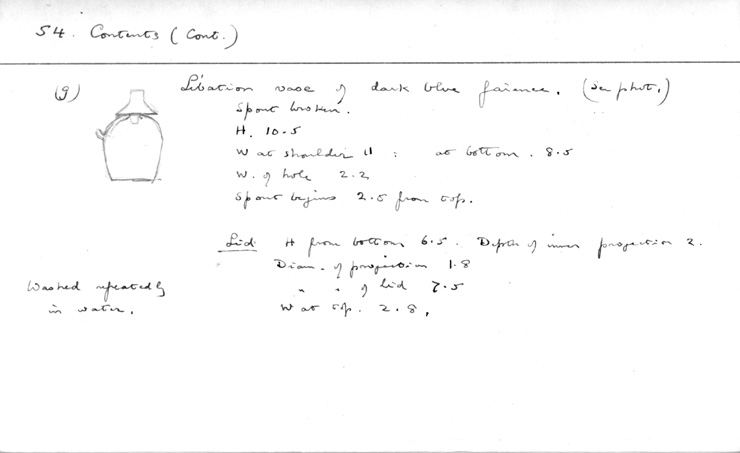 54. Contents (Cont.)
(g) Libation vase of dark blue faience. (See phot.)
Spout broken.
H. 10.5
W at shoulder 11 : at bottom. 8.5
W. of hole 2.2
Spout begins 2.5 from top.
Lid H from bottom 6.5. Depth of inner projection 2.
Diam. of projection 1.8
" " of lid 7.5
W at top. 2.8.
Washed repeatedly
in water.